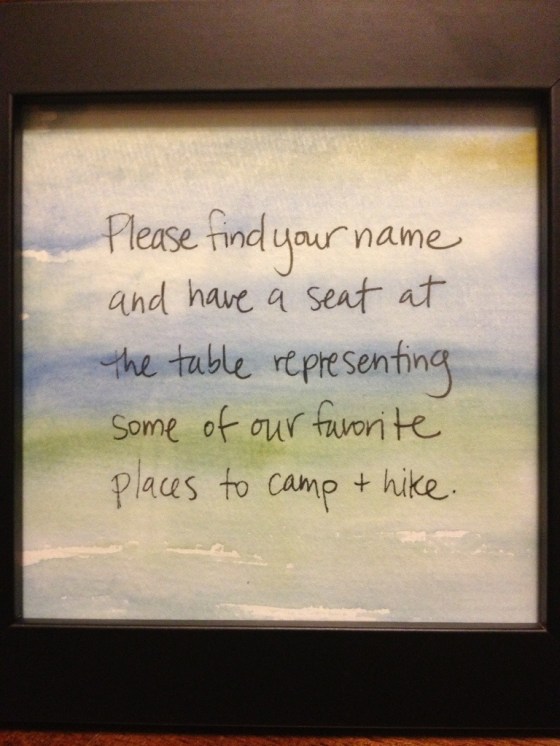 Please find your name
and have a seat at
the table representing
some of our favorite
places to camp + hike.